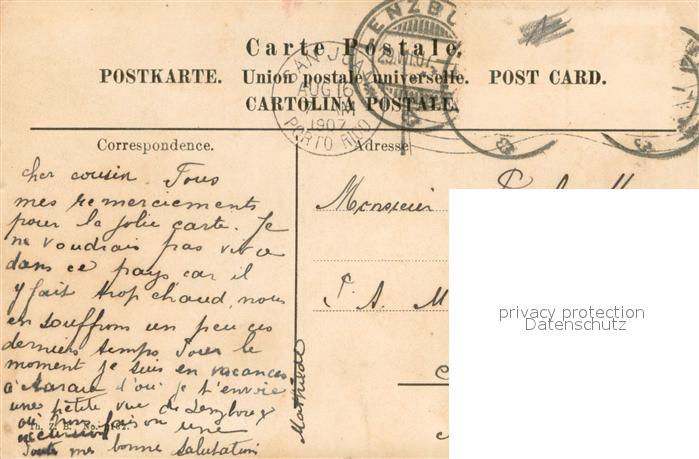 Carte Postale.
POSTKARTE. Union postale universelle. POST CARD.
CARTOLINA POSTALE.
ENZBU
29.VII.07
SAN JUAN
AUG 16
1907
PORTO RICO
Correspondence.
Adresse
cher cousin Tous
mes remerciements
pour la jolie carte. Je
ne voudrais pas vivre
dans ce pays car il
y fait trop chaud, nous
en souffrons un peu ces
derniers temps. Pour le
moment je suis en vacances
à Aarau d'où je t'envoie
une petite vue de
où nous faison une
Toutes mes bonne salutation
Mathilde
Th. Z. B. No.
Monsieur
P. A. M
privacy protection
Datenschutz